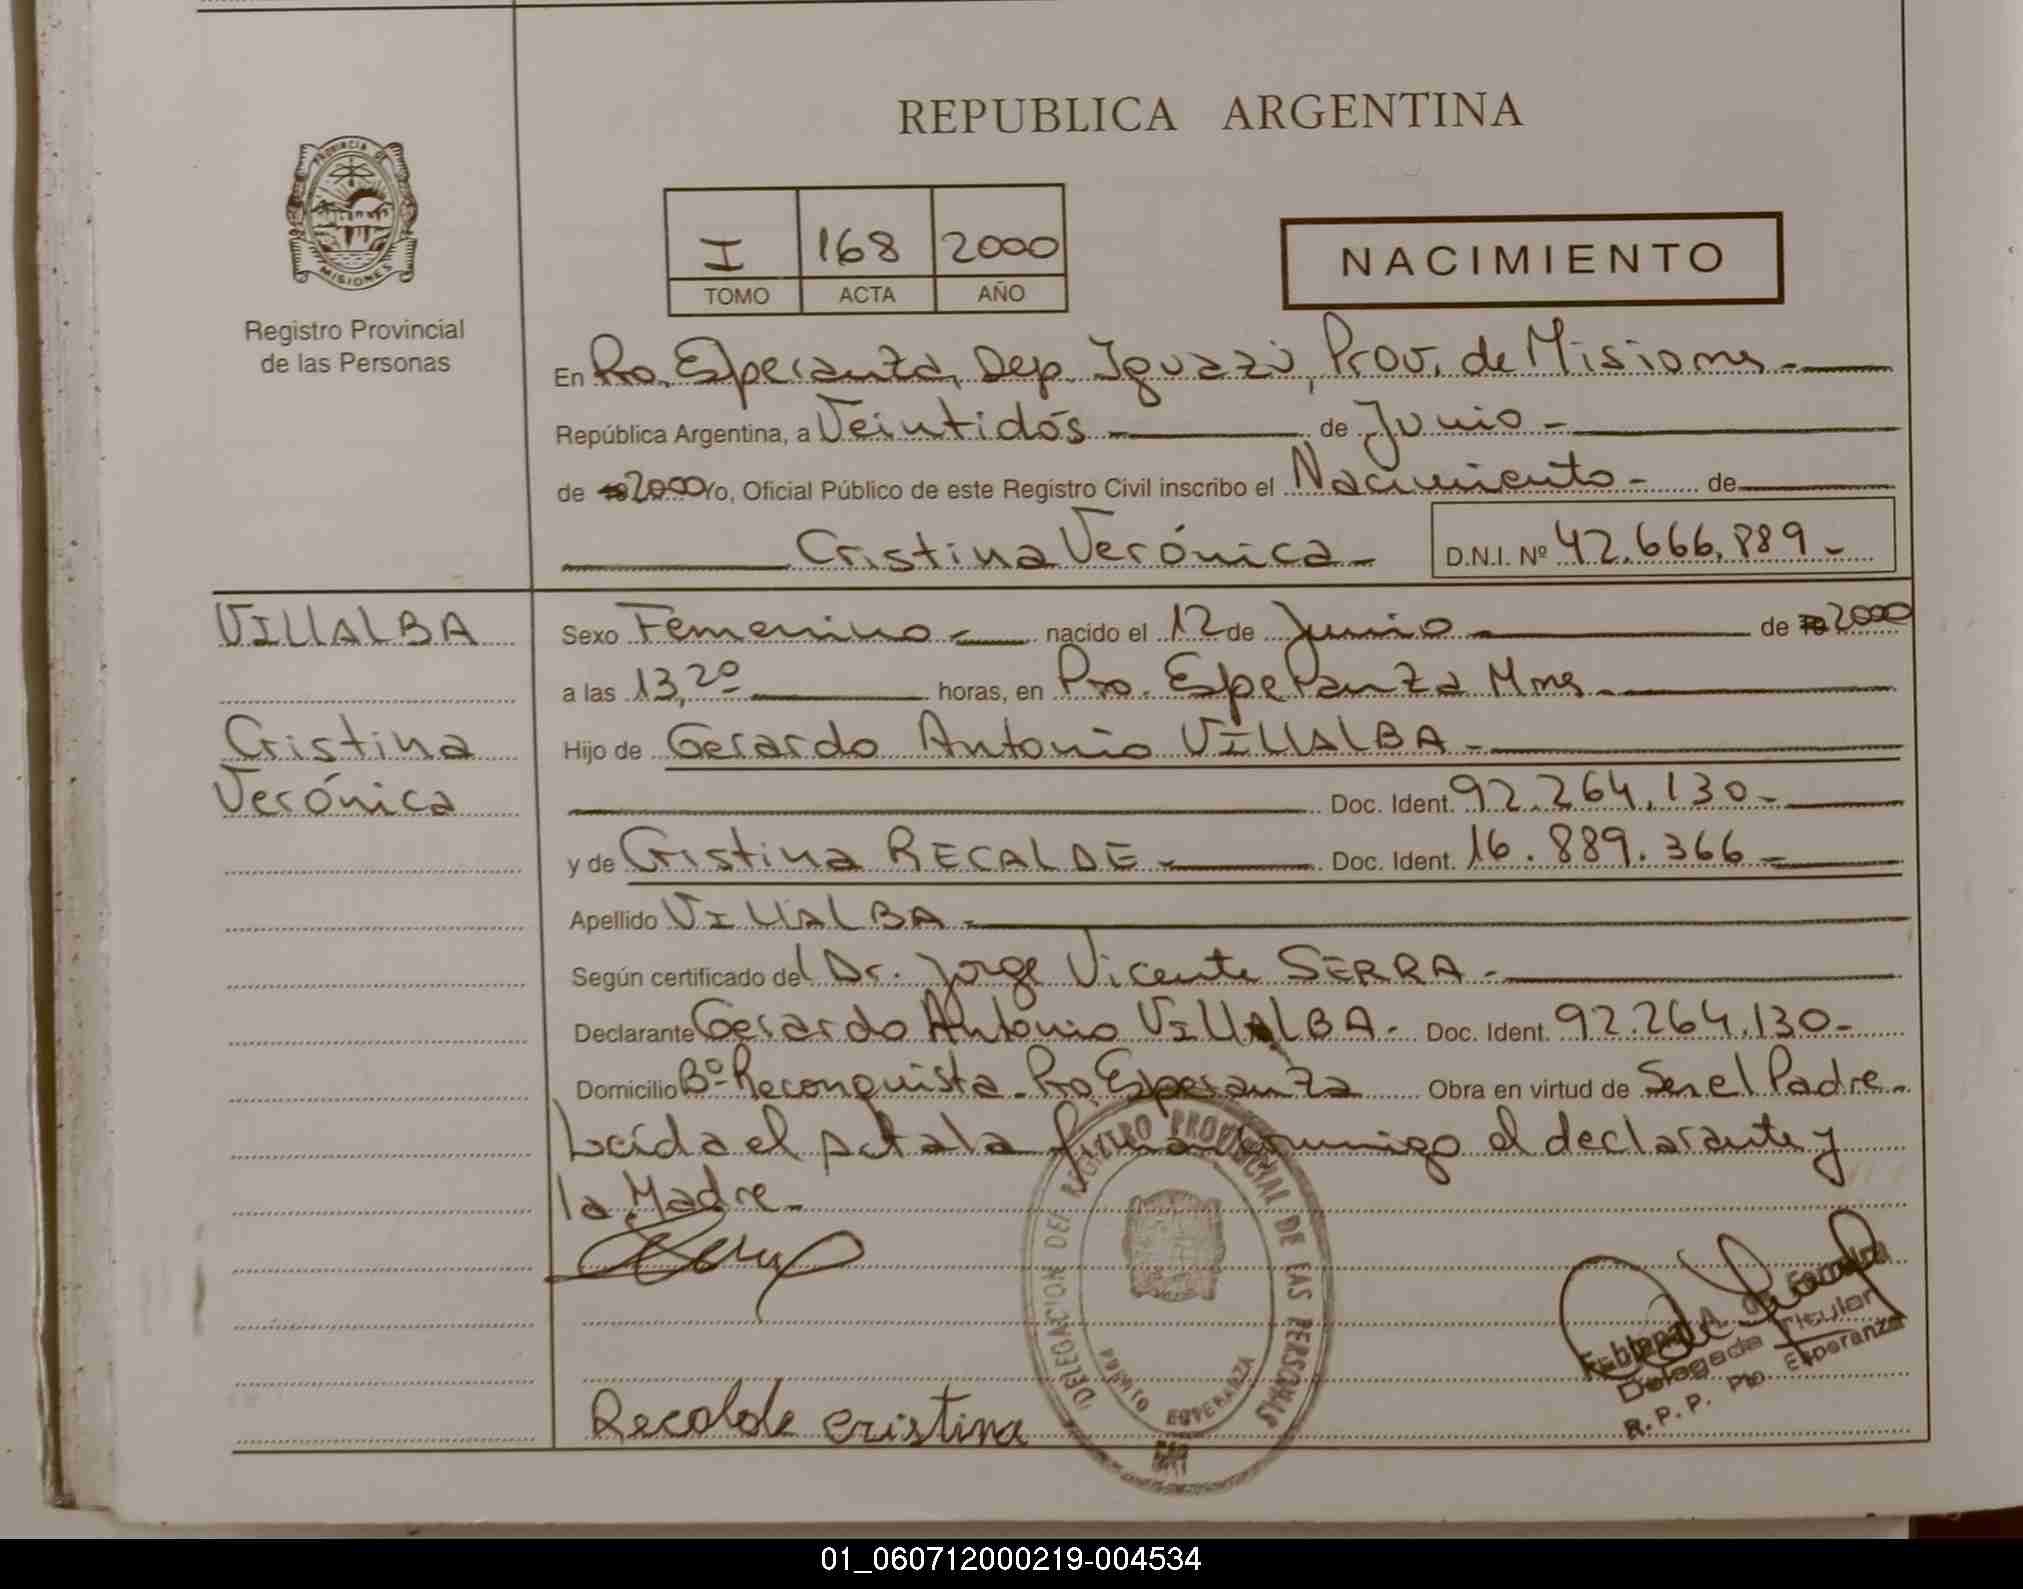 REPUBLICA ARGENTINA
PROVINCIA DE
MISIONES
Registro Provincial
de las Personas
I 168 2000
TOMO ACTA AÑO
NACIMIENTO
En Pto. Esperanza, Dep. Iguazú, Prov. de Misiones -
República Argentina, a Veintidós - de Junio -
de 2000 Yo, Oficial Público de este Registro Civil inscribo el Nacimiento - de
Cristina Verónica - D.N.I. Nº 42.666.889 -
VILLALBA
Cristina
Verónica
Sexo Femenino - nacido el 12 de Junio - de 2000
a las 13,20 horas, en Pto. Esperanza Mnes -
Hijo de Gerardo Antonio VILLALBA -
Doc. Ident. 92.264.130 -
y de Cristina RECALDE - Doc. Ident. 16.889.366 -
Apellido VILLALBA -
Según certificado del Dr. Jorge Vicente SERRA -
Declarante Gerardo Antonio VILLALBA - Doc. Ident. 92.264.130 -
Domicilio Bº Reconquista - Pto. Esperanza Obra en virtud de Ser el Padre -
Leída el acta la firman conmigo el declarante y
la Madre -
DELEGACION DEL REGISTRO PROVINCIAL DE LAS PERSONAS
PUERTO ESPERANZA
Delegada Titular
R.P.P. Pto Esperanza
Recalde cristina
01_060712000219-004534